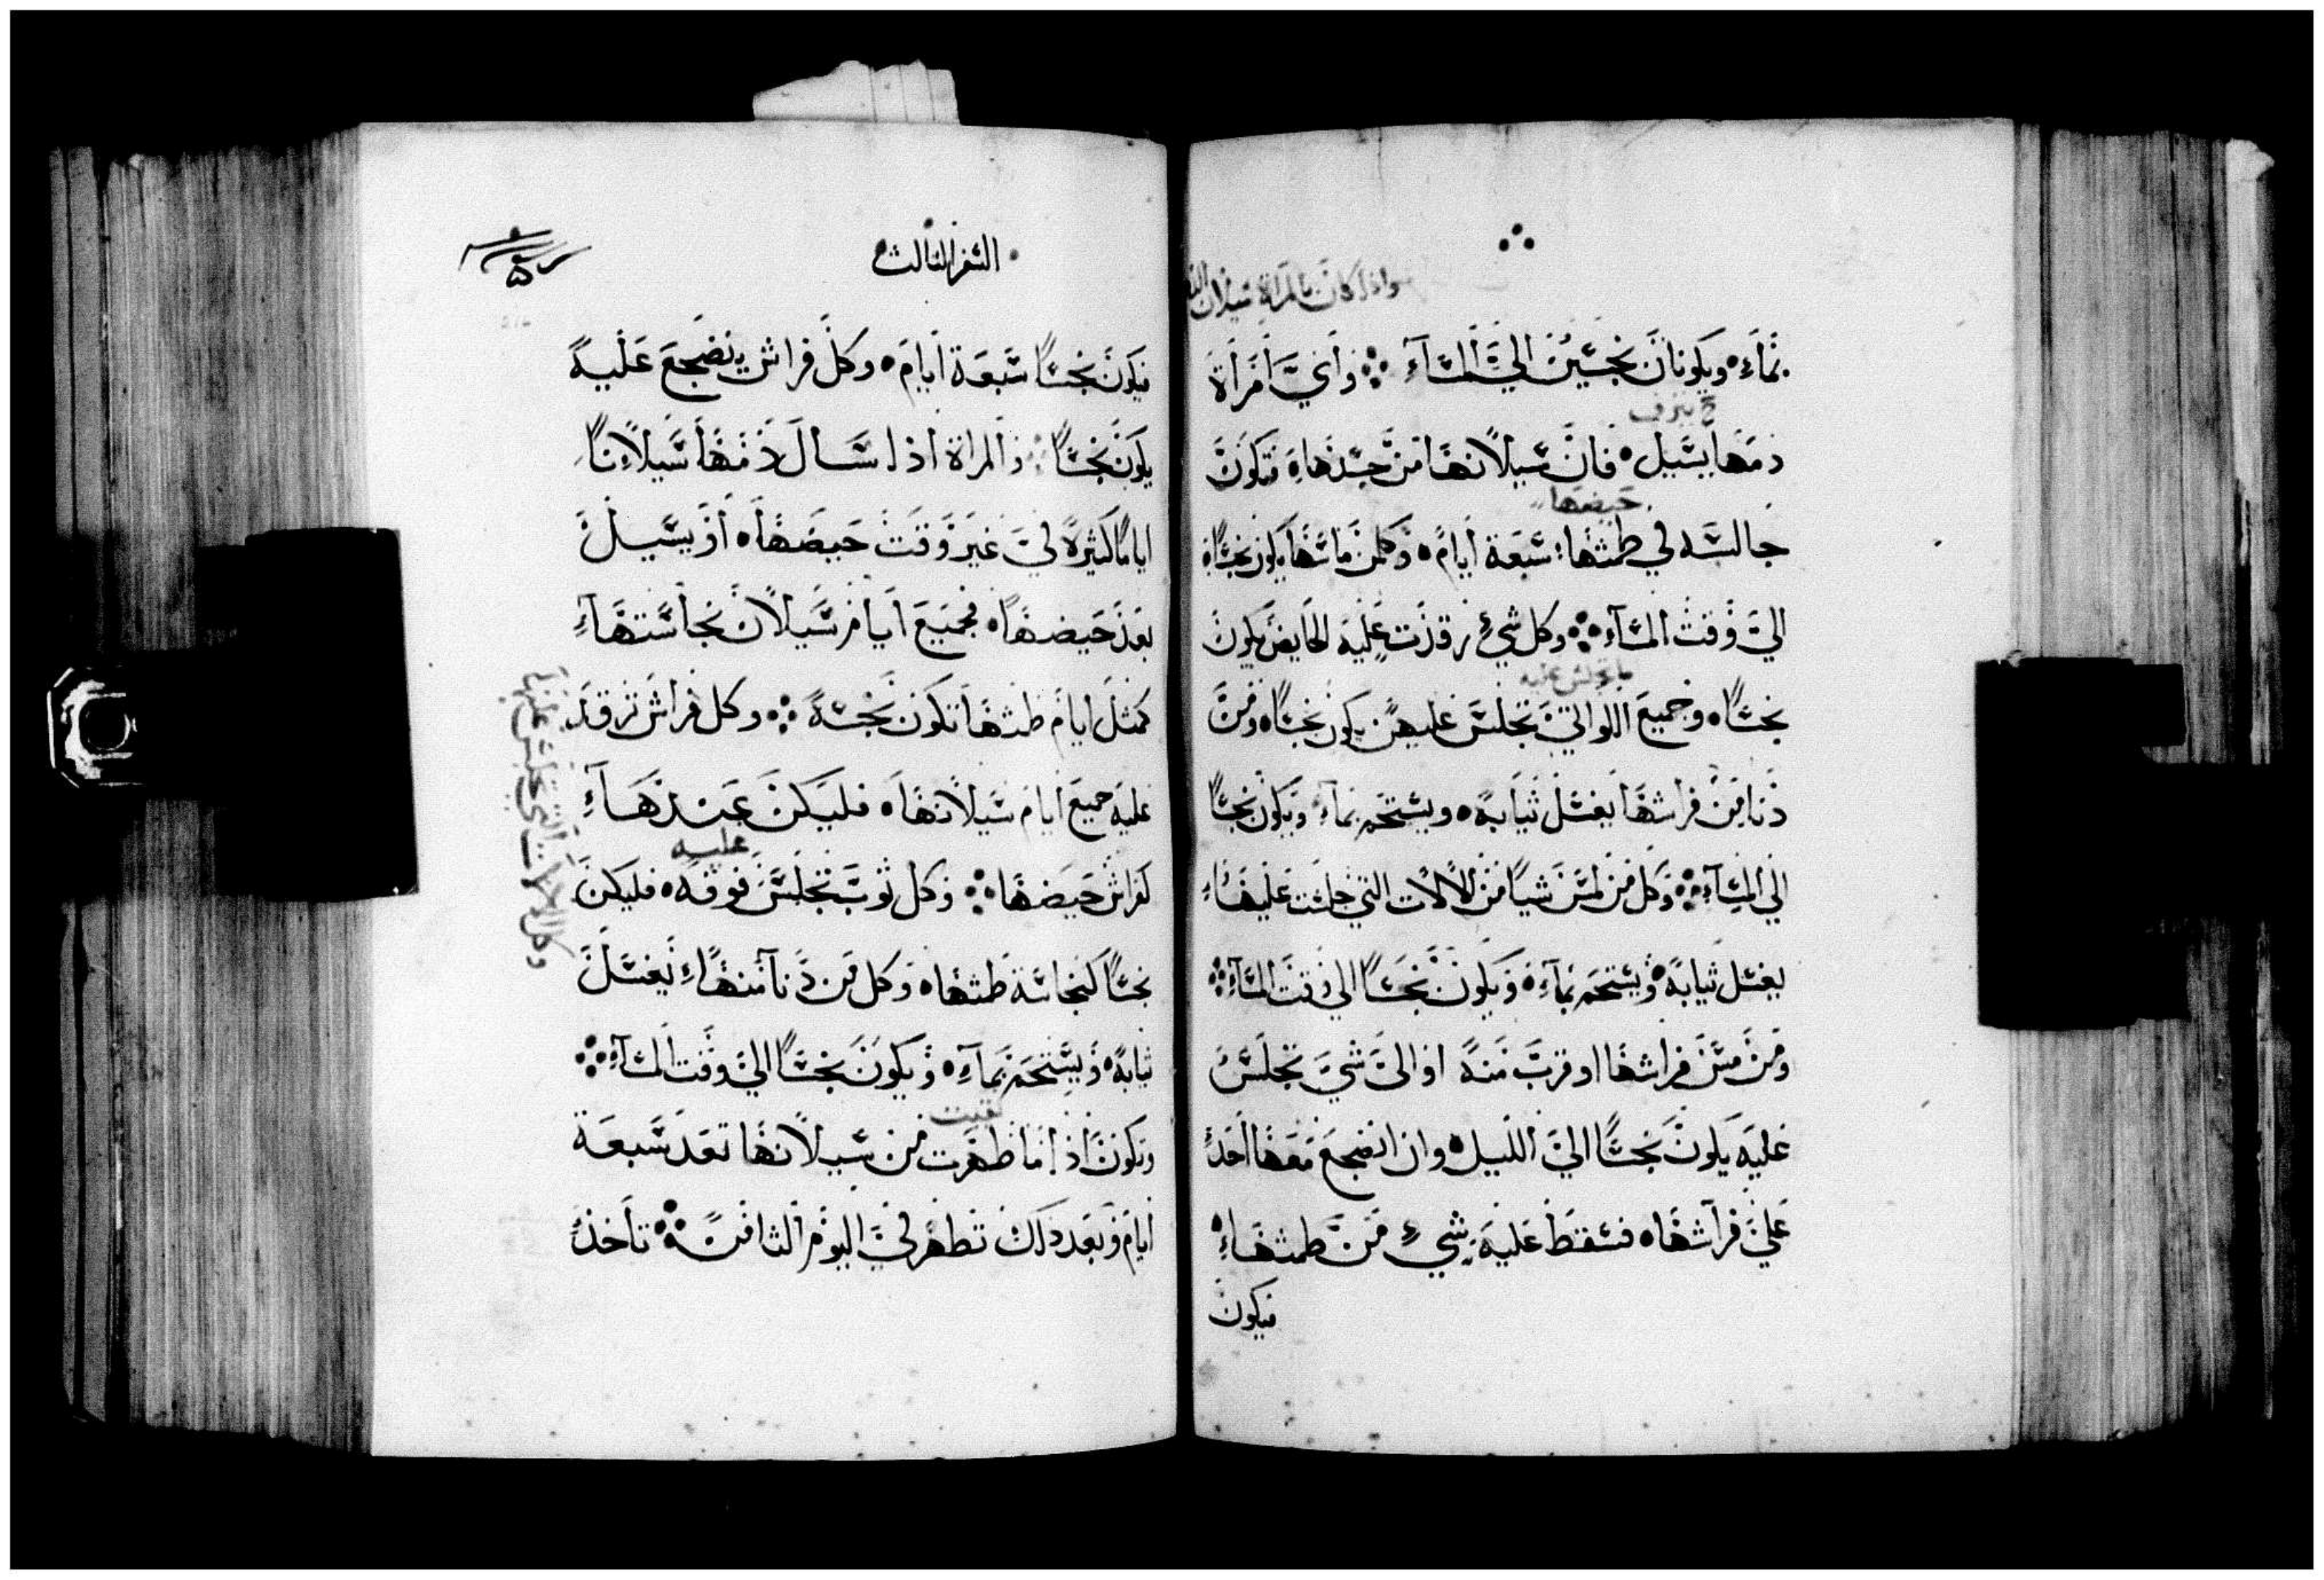 واذا كان بالمراة سيلان
بمآء، ويكونان نجسين الي المسآء ؞ واي امراة
ينزف
دمها يسيل، فان سيلانها من جسدها، فتكون
حيضها
جالسه في طمثها سبعة ايام، وكلمن ماسها يكون نجسًا،
الي وقت المسآء ؞ وكل شيء رقدت عليه الحايض يكون
ما تجلس عليه
نجسًا، وجميع اللواتي تجلس عليهن يكون نجسًا، ومن
دنا من فراشها يغسل ثيابه، ويستحم بمآء، ويكون نجسًا
الي المسآء ؞ وكل من لمس شيا من الالات التي جلست عليها،
يغسل ثيابه، ويستحم بمآء، ويكون نجسًا الي وقت المسآء ؞
ومن مس فراشها او قرب منه او الي شي تجلس
عليه يكون نجسًا الي الليل، وان انضجع معها احد
علي فراشها، فسقط عليه شيء من طمثها،
فيكون
السفر الثالث
فيكون نجسًا سبعة ايام، وكل فراش ينضجع عليه
يكون نجسًا ؞ والمراة اذا سال دمها سيلانًا
ايامًا كثيرة في غير وقت حيضها، او يسيل
بعد حيضها، فجميع ايام سيلان نجاستها
كمثل ايام طمثها تكون نجسة ؞ وكل فراش ترقد
عليه جميع ايام سيلانها، فليكن عندها
عليه
كفراش حيضها ؞ وكل ثوب تجلس فوقه، فليكن
نجسًا كنجاسة طمثها، وكل من دنا منها يغسل
ثيابه، ويستحم بمآء، ويكون نجسًا الي وقت المسآء ؞
نقيت
وتكون اذا ما طهرت من سيلانها تعد سبعة
ايام وبعد ذلك تطهر في اليوم الثامن ؞ تاخذ